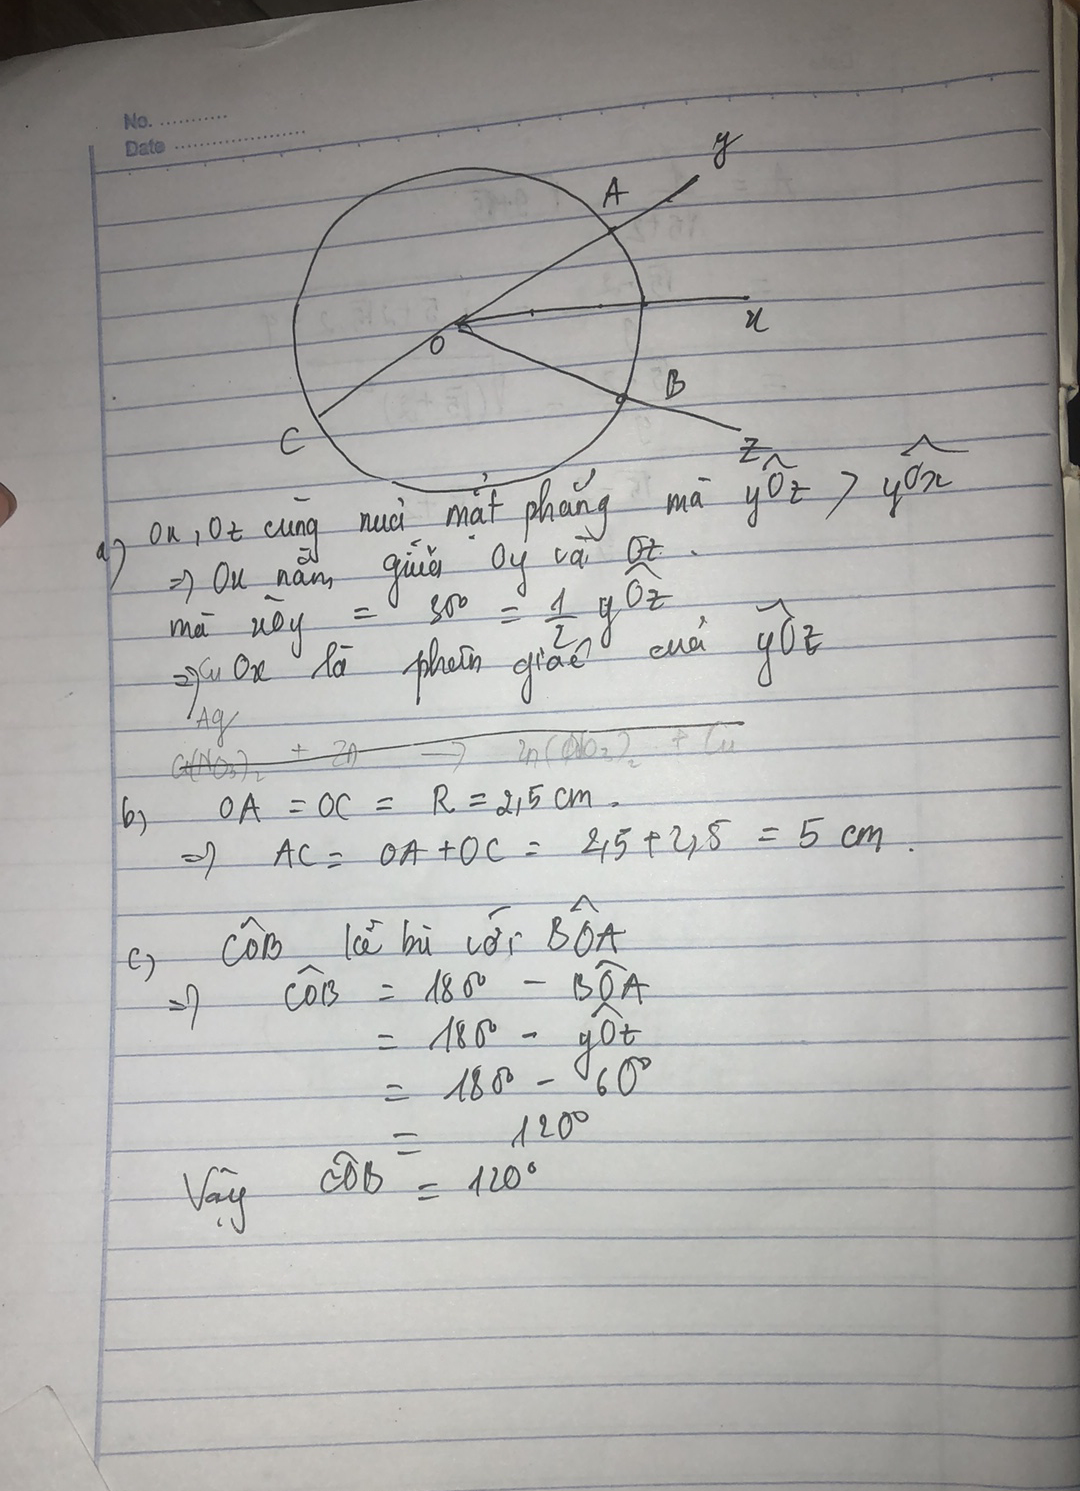 No. ...........
Date ......................
y
A
x
O
B
C
z
a) Ox, Oz cùng nửa mặt phẳng mà yÔz > yÔx
=> Ox nằm giữa Oy và Oz.
mà xÔy = 30° = 1/2 yÔz
=> Ox là phân giác của yÔz
Cu
Ag
Cu(NO3)2 + Zn → Zn(NO3)2 + Cu
b) OA = OC = R = 2,5 cm.
=> AC = OA + OC = 2,5 + 2,5 = 5 cm.
c) CÔB kề bù với BÔA
=> CÔB = 180° - BÔA
= 180° - yÔz
= 180° - 60°
= 120°
Vậy CÔB = 120°